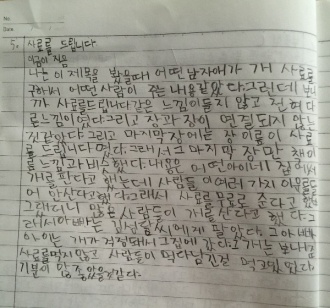 No
Date
5. 사료를 드립니다
이금이 지음
나는 이 제목을 봤을때 어떤 남자애가 개 사료를
구하써 어떤 사람이 주는 내용같았다. 그런데 보니
까 사료를드립니다같은 느낌이들지 않고 전혀다
른느낌이였다. 그리고 장과 장이 연결되지 않는
것같았다. 그리고 마지막장에는 장 이름이 사료
를 드립니다였다. 그래서 그 마지막 장만 책이
들느낌과 비슷했다. 내용은 연아이네 집에서
개를 판다고 했는데 사람들이 여러가지 이유를들
어 안산다고했다. 그래서 사료를 무료로 준다고 했다.
그랬더니 많은사람들이 개를산다고 했다. 그
래서 아빠는 김선을씨에게 팔았다. 그 아빠
아이는 개가 걱정돼서 그집에 갔다. 그 개는 보니까
사료를먹지않고 사람들이 먹다남긴걸 먹고있었다.
기분이 안 좋았을것같다.